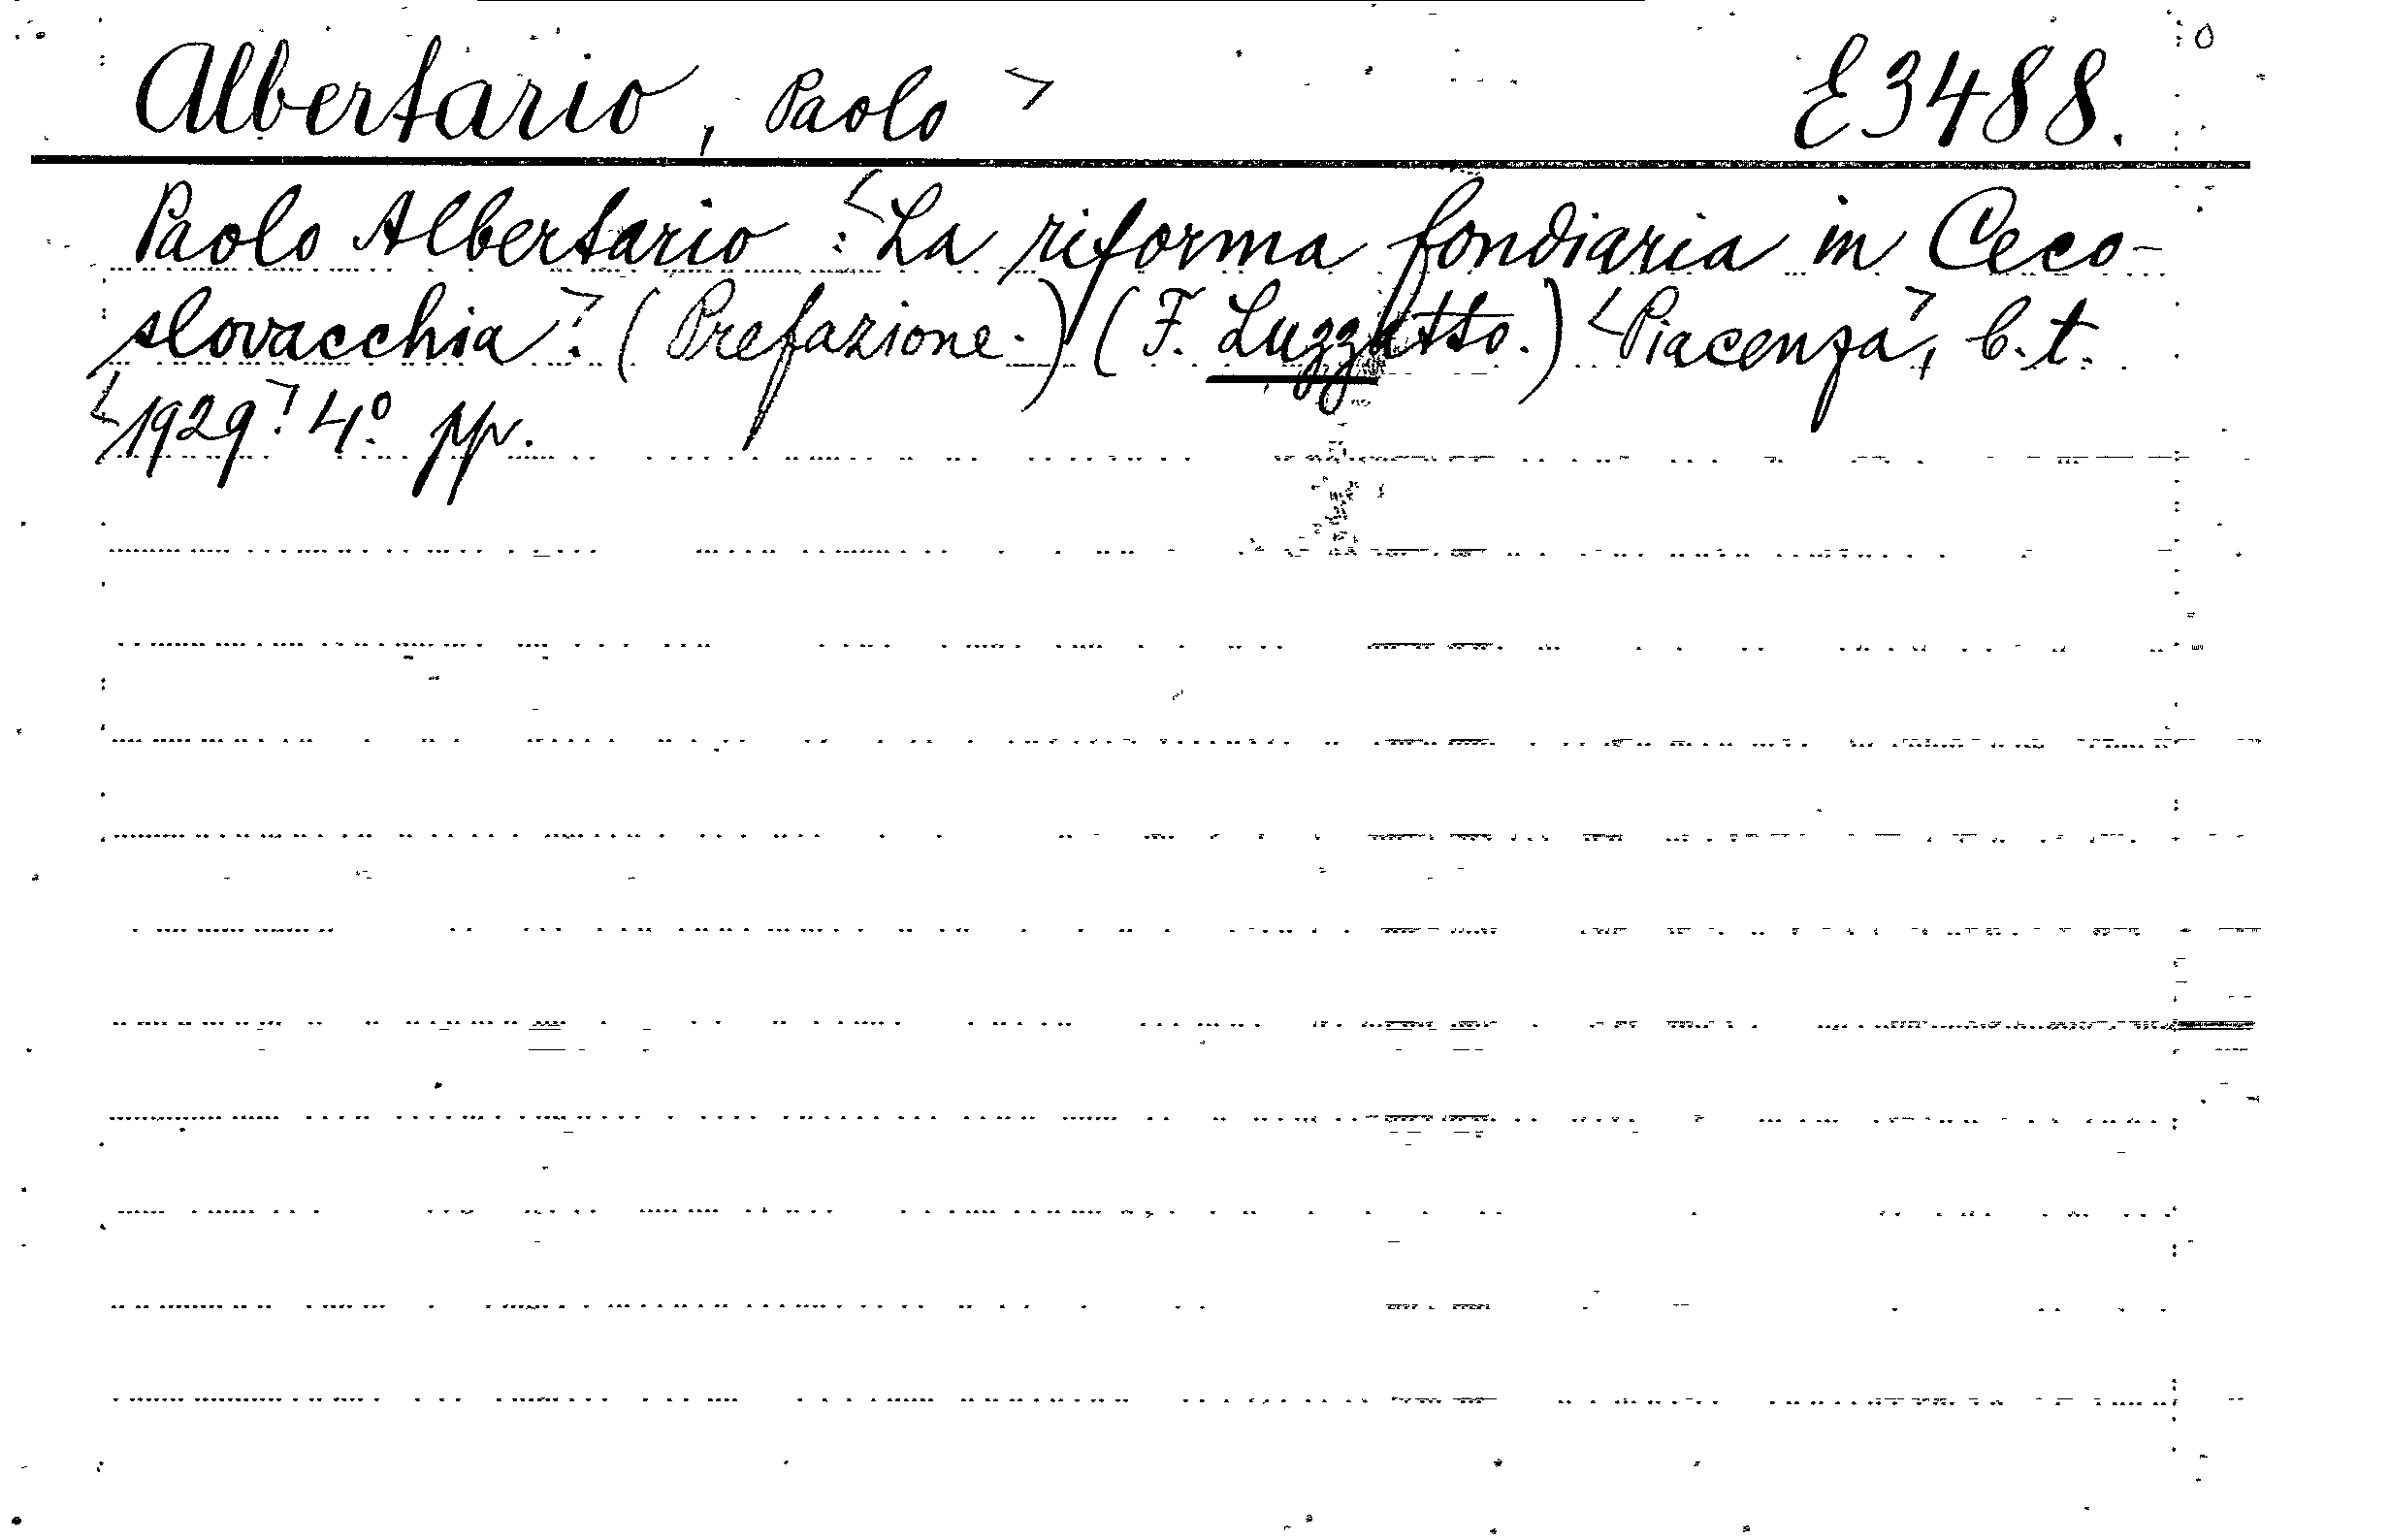 Albertario, Paolo> E3488.
Paolo Albertario: <La riforma fondiaria in Ceco-
slovacchia>. (Prefazione.) (F. Luzzatto.) <Piacenza>, b.t.
<1929>. 4°. pp.